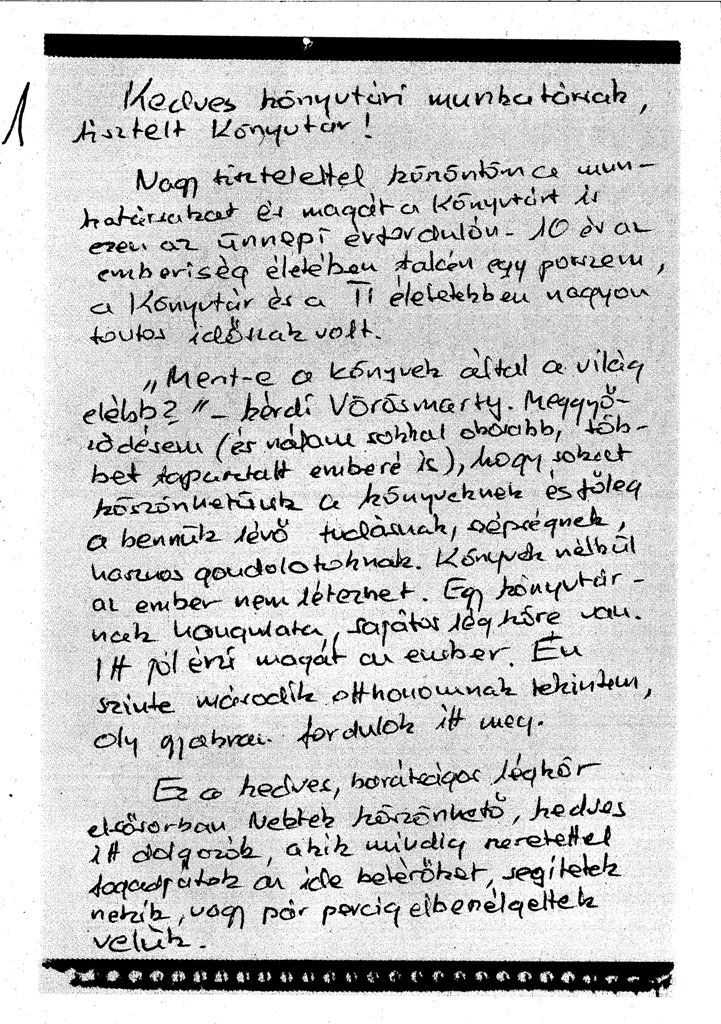 1
Kedves könyvtári munkatársak,
tisztelt Könyvtár!
Nagy tisztelettel köszöntöm a mun-
katársakat és magát a Könyvtárt is
ezen az ünnepi évfordulón. 10 év az
emberiség életében talán egy porszem,
a Könyvtár és a Ti életetekben nagyon
fontos időszak volt.
„Ment-e a könyvek által a világ
elébb?" – kérdi Vörösmarty. Meggyő-
ződésem (és nálam sokkal okosabb, töb-
bet tapasztalt emberé is), hogy sokat
köszönhetünk a könyveknek és főleg
a bennük lévő tudásnak, szépségnek,
hasznos gondolatoknak. Könyvek nélkül
az ember nem létezhet. Egy könyvtár-
nak hangulata, sajátos légköre van.
Itt jól érzi magát az ember. Én
szinte második otthonomnak tekintem,
oly gyakran fordulok itt meg.
Ez a kedves, barátságos légkör
elsősorban Nektek köszönhető, kedves
itt dolgozók, akik mindig szeretettel
fogadjátok az ide betérőket, segítetek
nekik, vagy pár percig elbeszélgettek
velük.